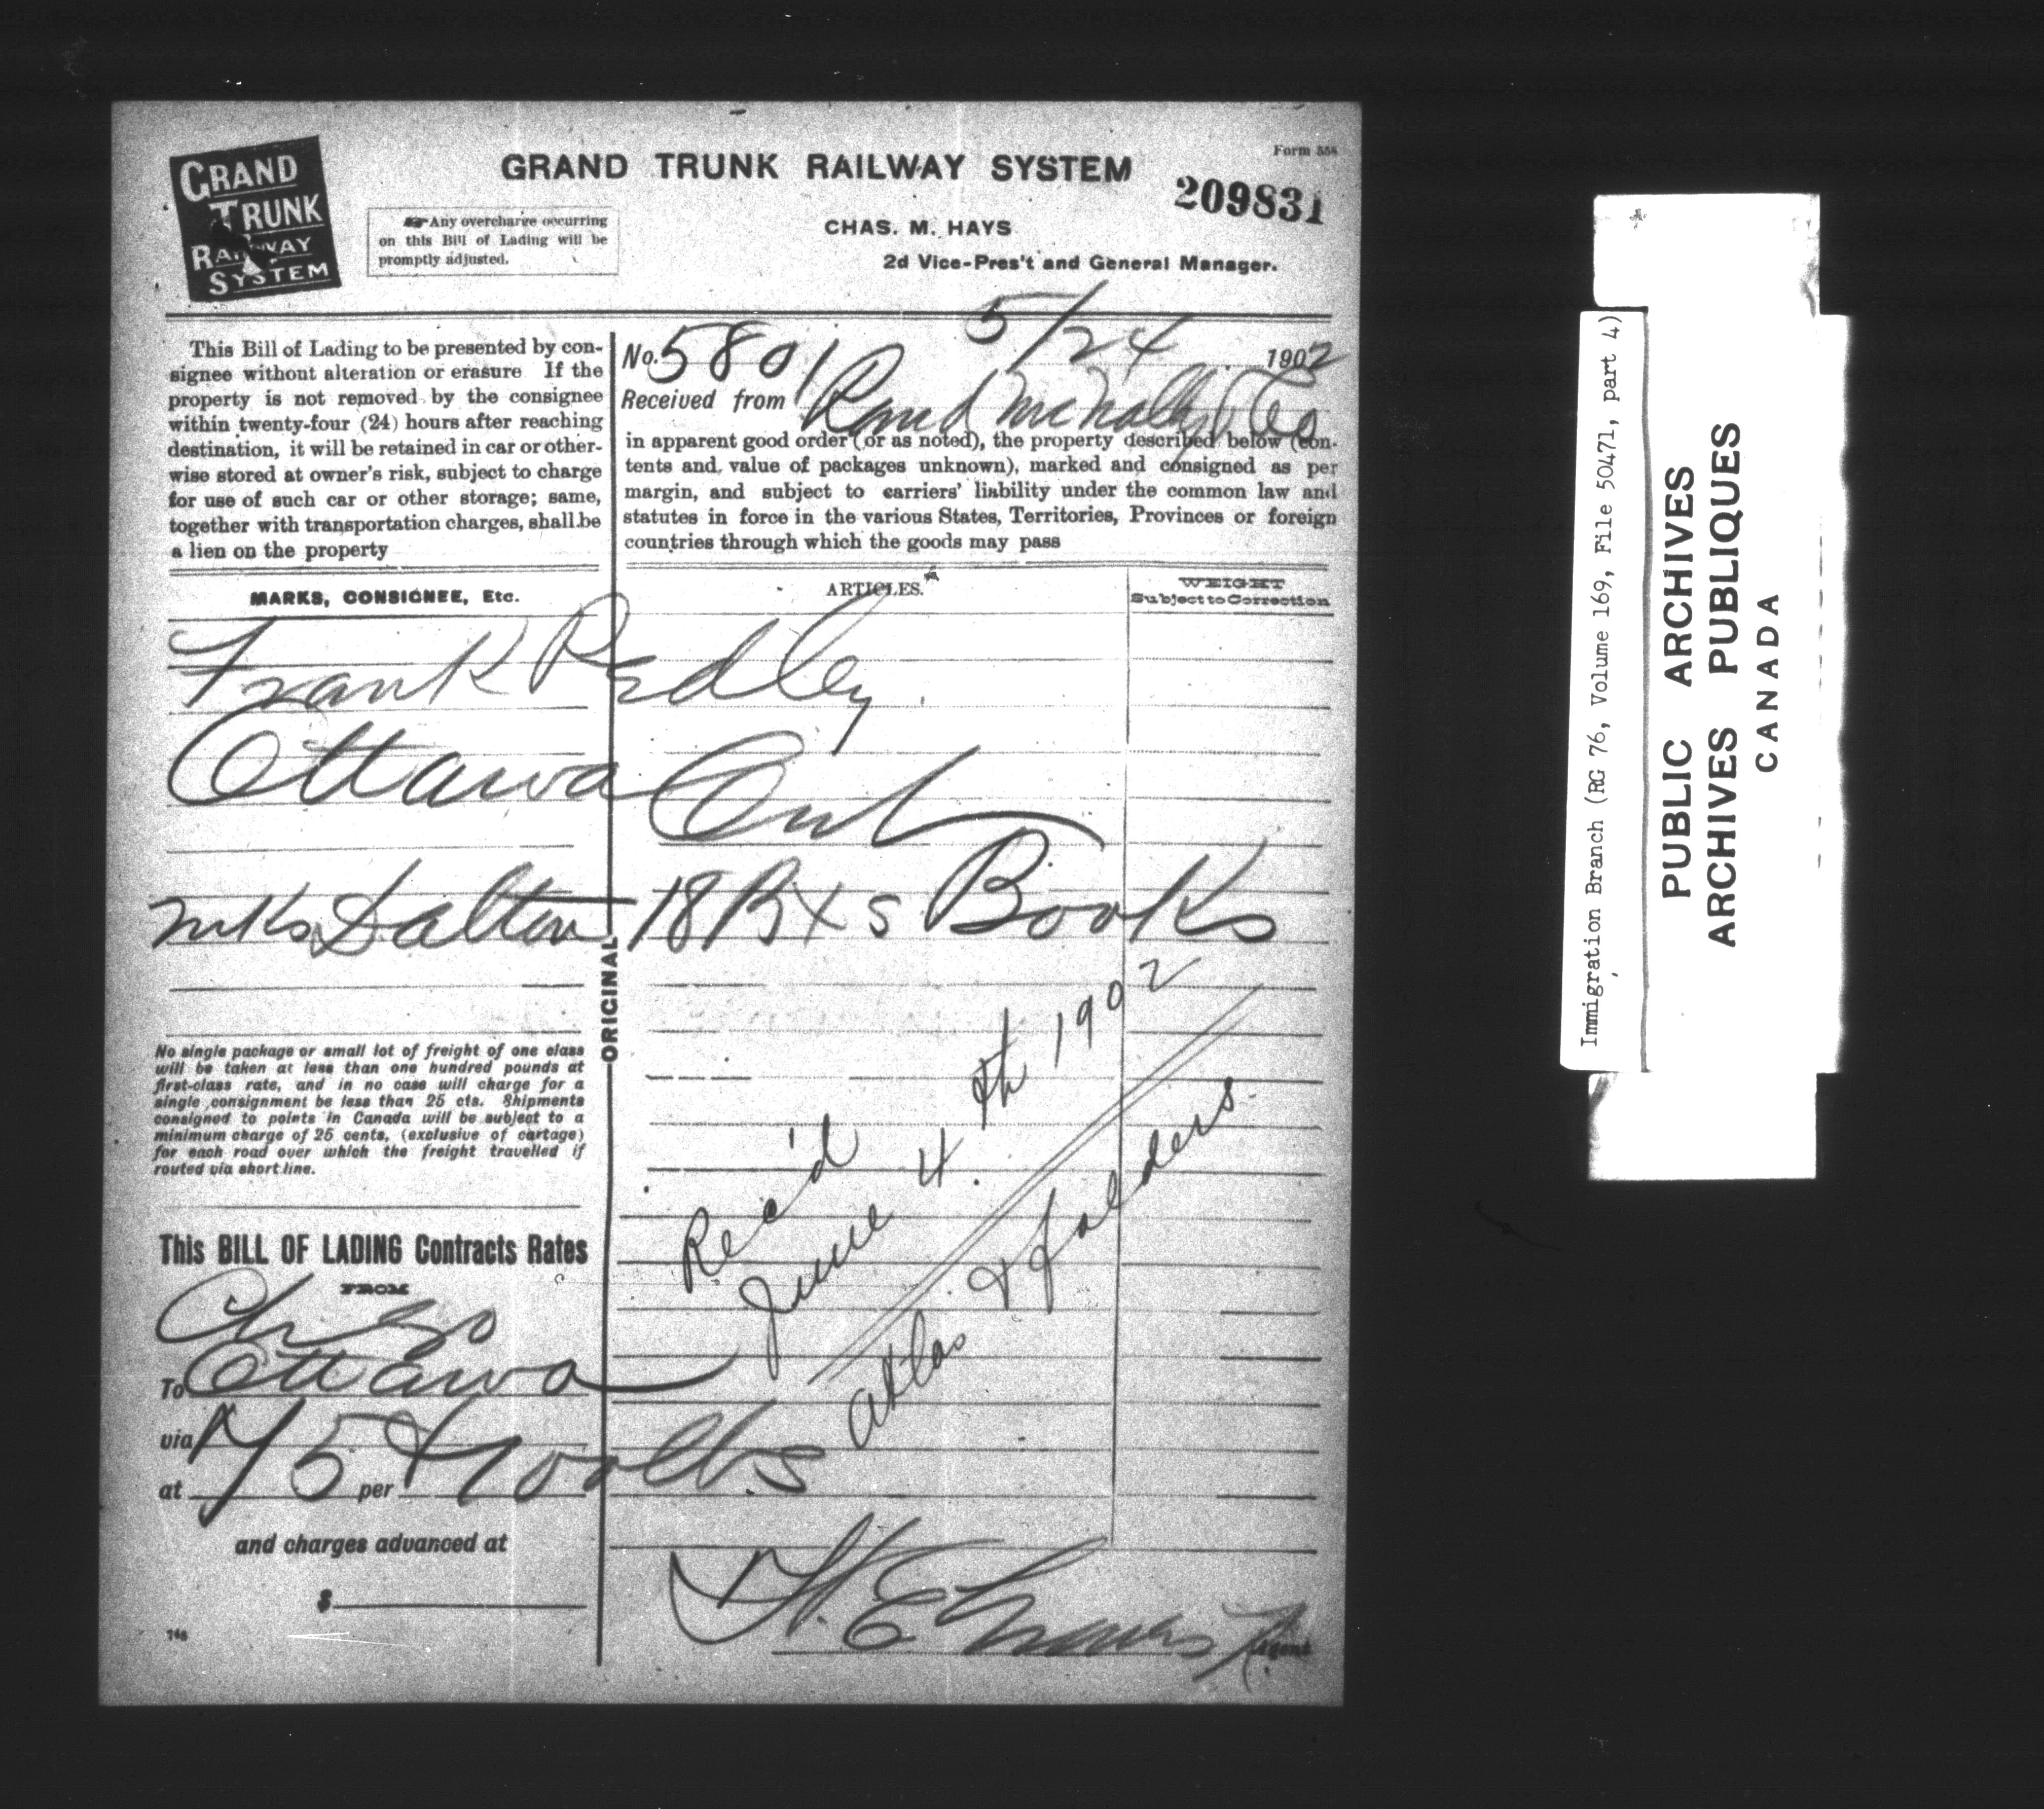 GRAND
TRUNK
RAILWAY
SYSTEM
GRAND TRUNK RAILWAY SYSTEM
Form 554
209831
Any overcharge occurring
on this Bill of Lading will be
promptly adjusted.
CHAS. M. HAYS
2d Vice-Pres't and General Manager.
This Bill of Lading to be presented by con-
signee without alteration or erasure If the
property is not removed by the consignee
within twenty-four (24) hours after reaching
destination, it will be retained in car or other-
wise stored at owner's risk, subject to charge
for use of such car or other storage; same,
together with transportation charges, shall be
a lien on the property
No. 5801 5/24 1902
Received from Rand McNally & Co
in apparent good order (or as noted), the property described below (con-
tents and value of packages unknown), marked and consigned as per
margin, and subject to carriers' liability under the common law and
statutes in force in the various States, Territories, Provinces or foreign
countries through which the goods may pass
MARKS, CONSIGNEE, Etc.
ARTICLES.
WEIGHT
Subject to Correction
Frank Pedley
Ottawa Ont
mks Dalton 18 Bxs Books
ORIGINAL
No single package or small lot of freight of one class
will be taken at less than one hundred pounds at
first-class rate, and in no case will charge for a
single consignment be less than 25 cts. Shipments
consigned to points in Canada will be subject to a
minimum charge of 25 cents, (exclusive of cartage)
for each road over which the freight travelled if
routed via short line.
Rec'd
June 4th 1902
atlas & folders.
This BILL OF LADING Contracts Rates
FROM
Chgo
To Ottawa
via
at 75 per 100 lbs
and charges advanced at
$
Agent
Immigration Branch (RG 76, Volume 169, File 50471, part 4)
PUBLIC ARCHIVES
ARCHIVES PUBLIQUES
CANADA